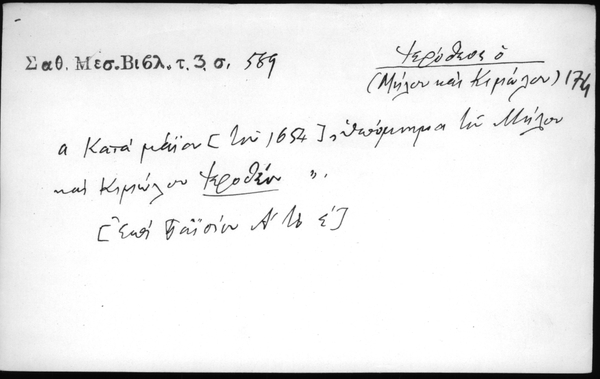 Σαθ. Μεσ. Βιβλ. τ. 3 σ. 589
Ἱερόθεος ὁ
(Μήλου καὶ Κιμώλου)
α Κατὰ μάϊον [τοῦ 1654] ὑπόμνημα τοῦ Μήλου
καὶ Κιμώλου Ἱεροθέου ".
[Ἐπὶ Παϊσίου Α' τὸ ε']